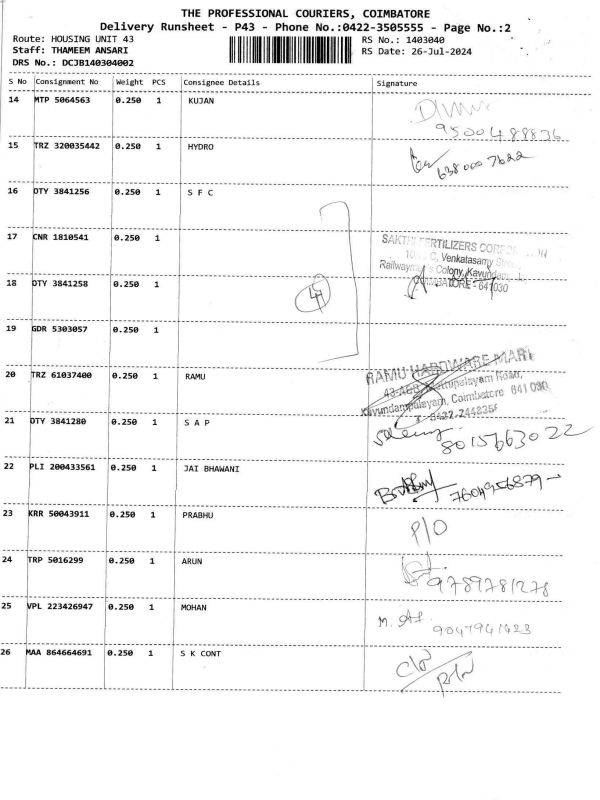 THE PROFESSIONAL COURIERS, COIMBATORE
Delivery Runsheet - P43 - Phone No.:0422-3505555 - Page No.:2
Route: HOUSING UNIT 43 RS No.: 1403040
Staff: THAMEEM ANSARI RS Date: 26-Jul-2024
DRS No.: DCJB140304002
S No Consignment No Weight PCS Consignee Details Signature
14 MTP 5064563 0.250 1 KUJAN
9500488836
15 TRZ 320035442 0.250 1 HYDRO
6380007622
16 OTY 3841256 0.250 1 S F C
17 CNR 1810541 0.250 1
SAKTHI FERTILIZERS
C, Venkatasamy
Colony, Kavundam
641030
18 OTY 3841258 0.250 1
4
19 GDR 5303057 0.250 1
20 TRZ 61037400 0.250 1 RAMU
RAMU HARDWARE MART
Mettupalayam Road,
Kavundampalayam, Coimbatore 641 030
21 OTY 3841280 0.250 1 S A P
8015663022
22 PLI 200433561 0.250 1 JAI BHAWANI
7604956879
23 KRR 50043911 0.250 1 PRABHU
P/O
24 TRP 5016299 0.250 1 ARUN
9789781278
25 VPL 223426947 0.250 1 MOHAN
9047941423
26 MAA 864664691 0.250 1 S K CONT